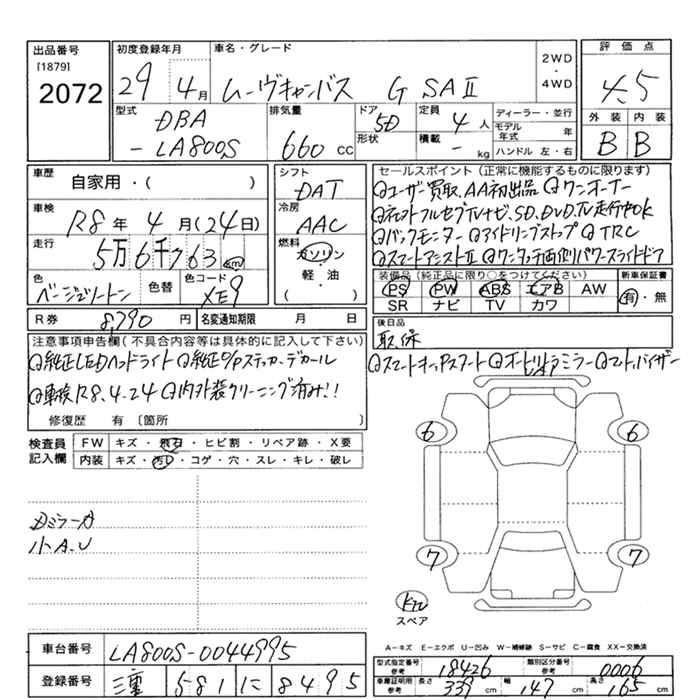 出品番号
[1879]
2072
初度登録年月
29年 4月
車名・グレード
ムーヴキャンバス G SAⅡ
2WD
・
4WD
評価点
4.5
外装 内装
B B
型式
DBA
- LA800S
排気量
660 CC
ドア 5D
形状
定員 4人
積載 - kg
ディーラー・並行
モデル年式 年
ハンドル 左・右
車歴
自家用・( )
車検
R8年 4月(24日)
走行
5万6千763 km
色
ベージュツートン
色替
色コード
XE9
シフト
DAT
冷房
AAC
燃料
ガソリン
・
軽・油
( )
セールスポイント(正常に機能するものに限ります)
◎ユーザー買取、AA初出品 ◎ワンオーナー
◎ネオトフルセグTVナビ、SD、DVD、TV走行中OK
◎バックモニター ◎アイドリングストップ ◎TRC
◎スマートアシストⅡ ◎ワンタッチ両側パワースライドドア
装備品(純正品に限り○をつけてください)
PS PW ABS エアB AW
SR ナビ TV カワ
新車保証書
有・無
R券 8,790 円
名変通知期限 月 日
後日品
取、保
注意事項申告欄(不具合内容等は具体的に記入して下さい)
◎純正LEDヘッドライト ◎純正o/pステッカーデカール
◎車検R8.4-24 ◎内外装クリーニング済み!!
修復歴 有 〔箇所 〕
◎スマートキーPスタート ◎オートリトラミラー ◎マット、バイザー
検査員
記入欄
FW キズ・飛石・ヒビ割・リペア跡・X要
内装 キズ・汚レ・コゲ・穴・スレ・キレ・破レ
小A.U
6 6
7 7
スペア
A-キズ E-エクボ U-凹み W-補修跡 S-サビ C-腐食 XX-交換済
車台番号 LA800S-0044995
登録番号 三重 581 に 8495
型式指定番号 参考 18426
類別区分番号 参考 0006
車庫証明用 参考 長さ 339 cm 幅 147 cm 高さ 165 cm